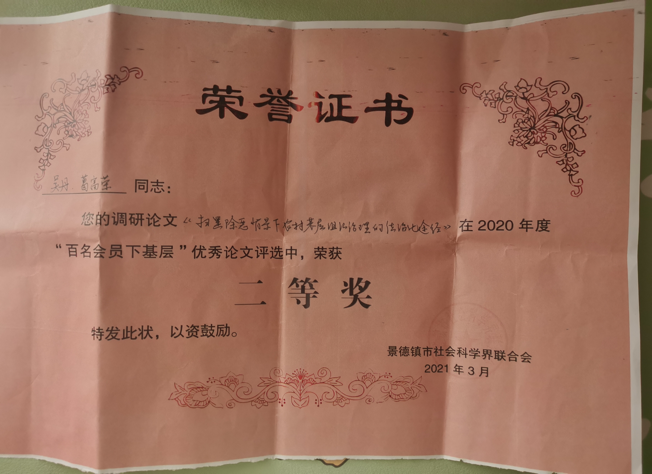 荣誉证书
吴丹、葛高荣 同志：
您的调研论文《扫黑除恶背景下农村基层组织治理的法治化途径》在2020年度
“百名会员下基层”优秀论文评选中，荣获
二等奖
特发此状，以资鼓励。
景德镇市社会科学界联合会
2021年3月